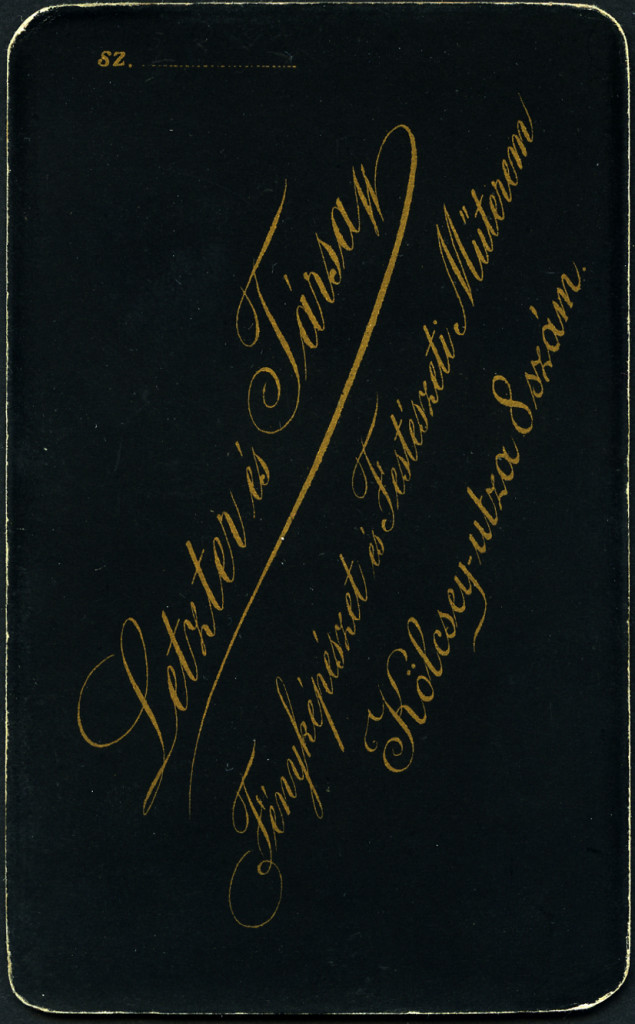 SZ.
Letzter és Társai
Fényképészet és Festészeti Műterem
Kölcsey-utza 8 szám.